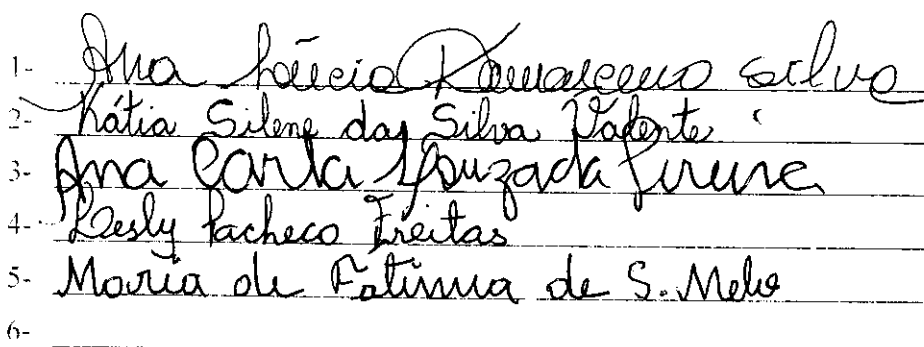 1- Ana Lúcia Damasceno Silva
2- Kátia Silene das Silva Valente
3- Ana Carla Souza da
4- Kesly Pacheco Freitas
5- Maria de Fatima de S. Melo
6-